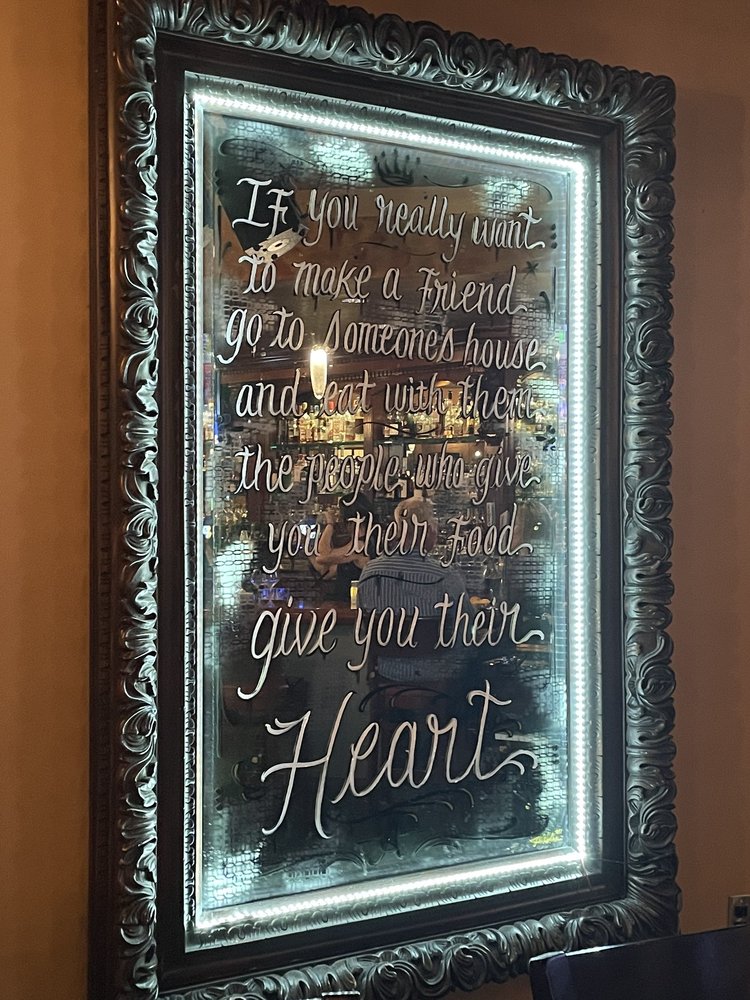 If you really want
to make a Friend
go to someones house
and eat with them
the people who give
you their Food
give you their
Heart